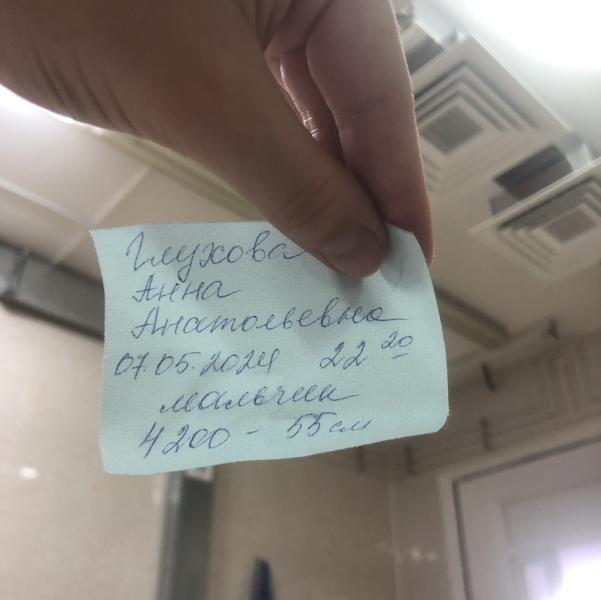 Глухова
Анна
Анатольевна
07.05.2024 22 20
мальчик
4200 - 55 см